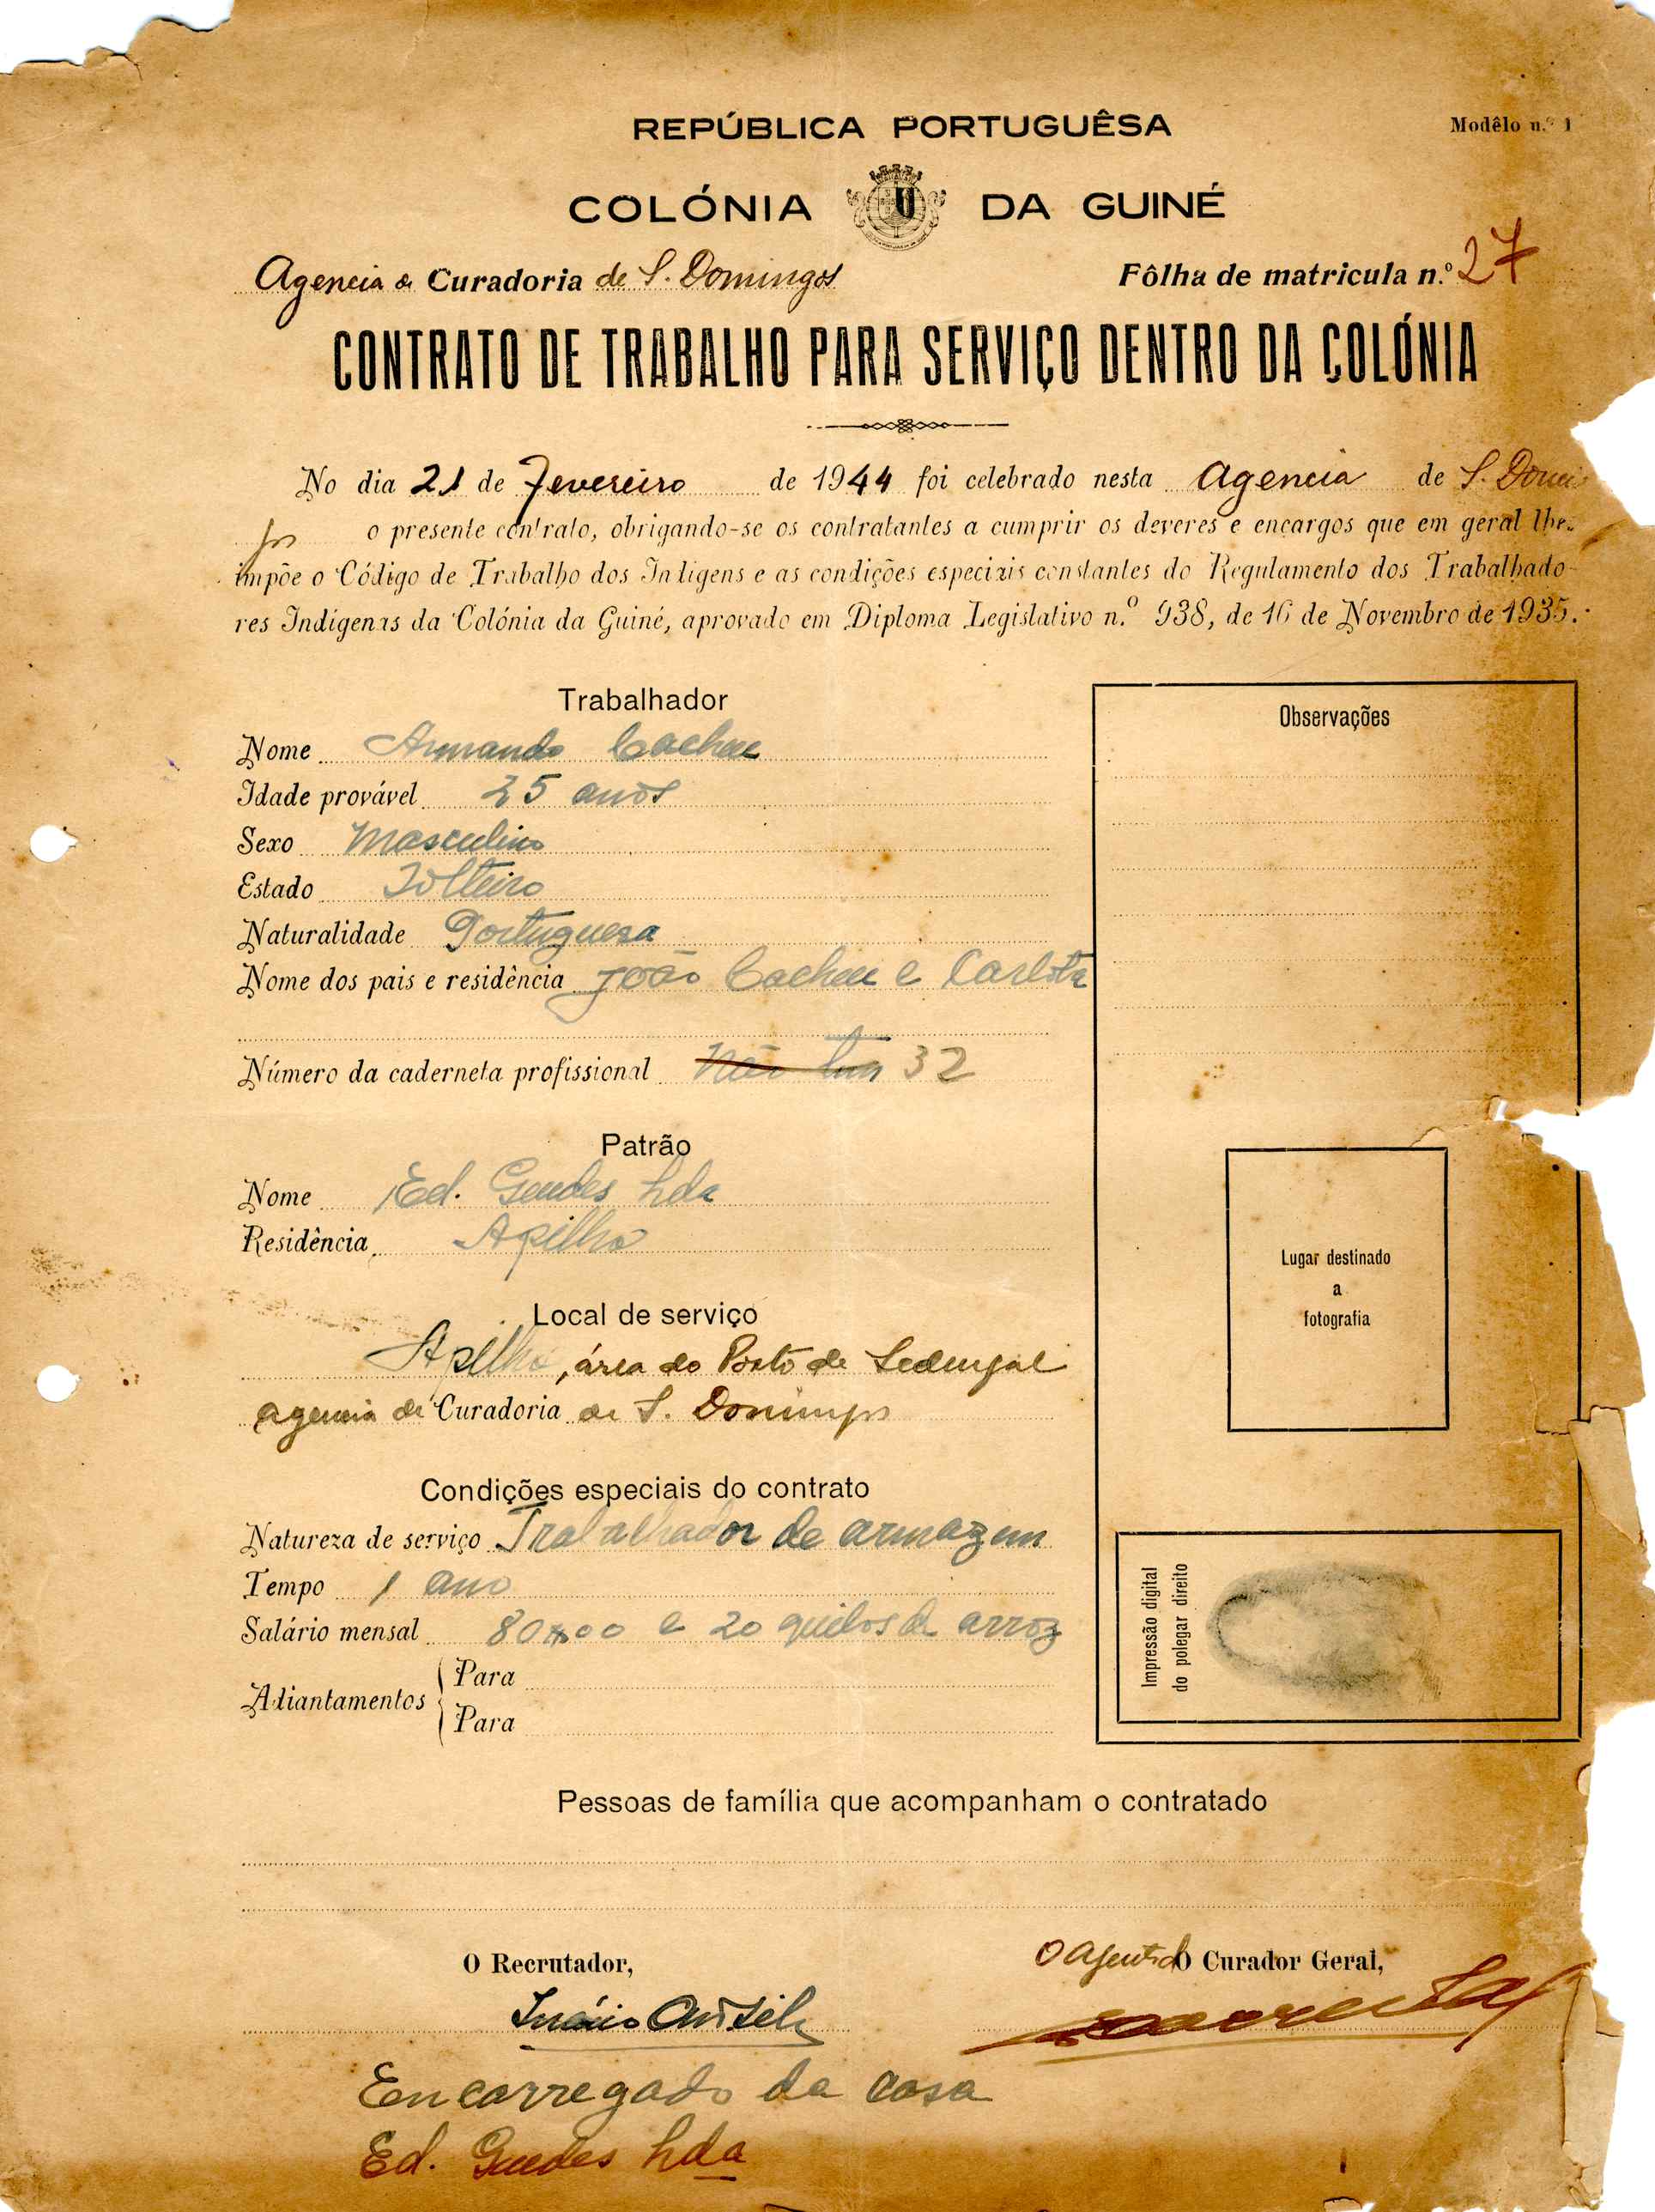 REPÚBLICA PORTUGUÊSA
Modêlo n.º 1
COLÓNIA DA GUINÉ
Agencia de Curadoria de S. Domingos
Fôlha de matricula n.º 27
CONTRATO DE TRABALHO PARA SERVIÇO DENTRO DA COLÓNIA
No dia 21 de Fevereiro de 1944 foi celebrado nesta Agencia de S. Domin
gos o presente contrato, obrigando-se os contratantes a cumprir os deveres e encargos que em geral lhes
impõe o Código de Trabalho dos Indígens e as condições especiais constantes do Regulamento dos Trabalhado-
res Indígenas da Colónia da Guiné, aprovado em Diploma Legislativo n.º 938, de 16 de Novembro de 1935.
Trabalhador
Nome Armando Cacheu
Idade provável 25 anos
Sexo Masculino
Estado Solteiro
Naturalidade Portuguesa
Nome dos pais e residência João Cacheu e Carlota
Número da caderneta profissional Não tem 32
Observações
Patrão
Nome Ed. Guedes Lda
Residência Apilho
Lugar destinado
a
fotografia
Local de serviço
Apilho, área do Posto de Sedengal
agencia de Curadoria de S. Domingos
Condições especiais do contrato
Natureza de serviço Trabalhador de armazem
Tempo 1 ano
Salário mensal 80$00 e 20 quilos de arroz
Adiantamentos
Para
Para
Impressão digital
do polegar direito
Pessoas de família que acompanham o contratado
O Recrutador,
O Agente do Curador Geral,
Encarregado da casa
Ed. Guedes Lda